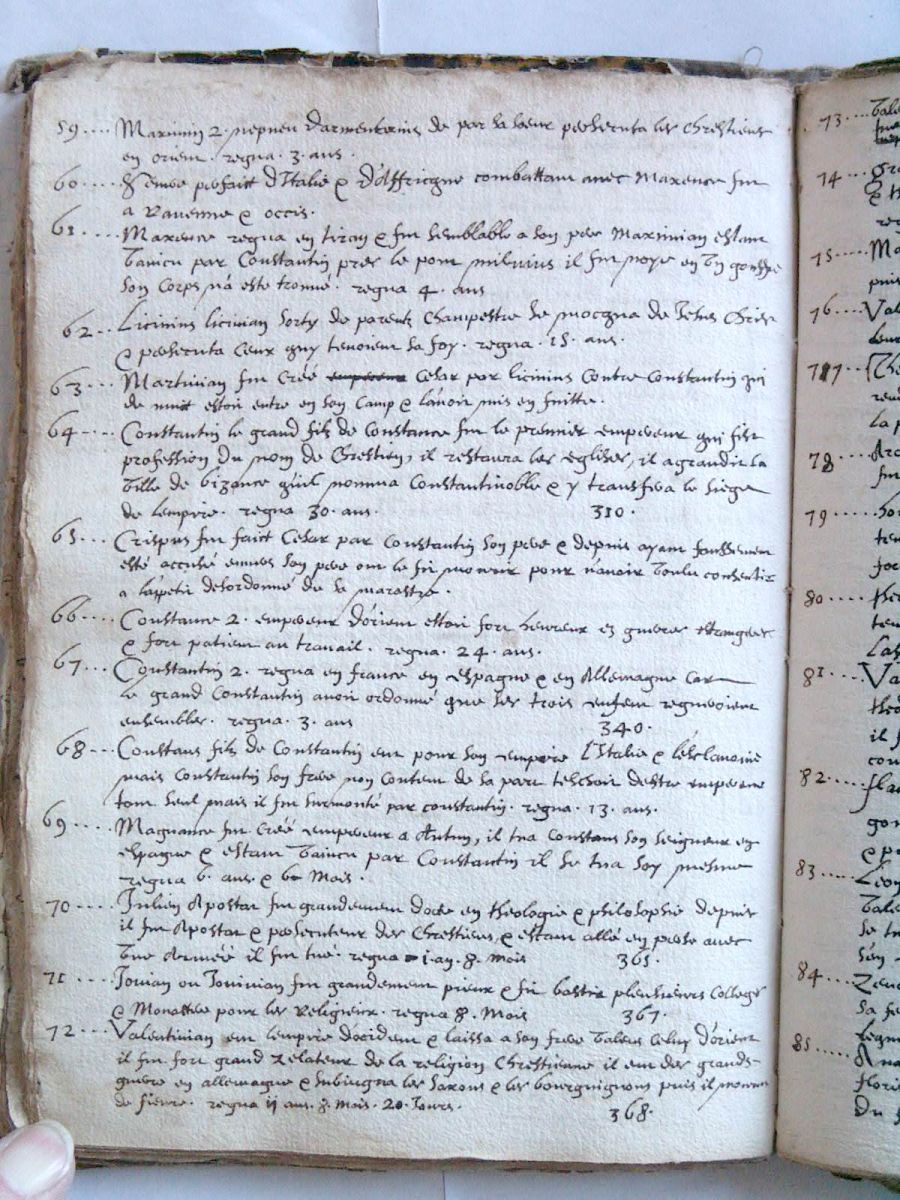 59.... Maximin 2. nepueu d'armentarius de par sa soeur persecuta les Chrestiens
en orient. regna. 3. ans.
60.... Seuere prefaict d'Italie & d'Affricque combattant avec Maxence fut
a Rauenne & occis.
61.... Maxence regna en tiran & fut semblable a son pere Maximian estant
vaincu par Constantin pres le pont miluius il fut noye en vn gouffre
son corps n'a esté trouué. regna 4. ans
62... Licinius licinian sorty de parentz champestre se mocqua de Jesus Christ
& persecuta ceux quy tenoient sa foy. regna. 15. ans.
63... Martinian fut créé Cesar par licinius contre constantin qui
de nuict estoit entré en son camp & l'auoit mis en fuitte.
64... Constantin le grand filz de Constance fut le premier empereur qui fist
profession du nom de Chrestien, il restaura les eglises, il agrandit la
ville de bizance qu'il nomma Constantinoble & y transfera le siege
de lempire. regna 30. ans. 310.
65... Crispus fut faict Cesar par Constantin son pere & depuis ayant faussement
esté accusé enuers son pere qui le fit mourir pour n'auoir voulu consentir
a l'apetit desordonné de sa marastre.
66.... Constance 2. empereur d'orient estoit fort heureux es guerres etrangeres
& fort patient au trauail. regna. 24. ans.
67.... Constantin 2. regna en france en espagne & en Allemagne car
le grand Constantin auoit ordonné que ses trois enfans regneroient
ensembles. regna. 3. ans 340.
68... Constans filz de Constantin eut pour son empire l'Italie & l'esclauonie
mais Constantin son frere non content de sa part taschoit destre empereur
tout seul mais il fut surmonté par constantin. regna. 13. ans.
69.... Magnance fut créé empereur a Autun, il tua constans son seigneur en
espagne & estant vaincu par Constantin il se tua soy mesme
regna 6. ans & 6 Mois.
70.... Julien Apostat fut grandement docte en theologie & philosophie depuis
il fut Apostat & persecuteur des Chrestiens & estant allé en perse avec
vne Armeé il fut tué. regna 1. an. 8. Mois 365.
71.... Jouian ou Jouinian fut grandement pieux & fit bastir plusieurs Colleges
& Monasteres pour les Religieux. regna 8. Mois 367.
72.... Valentinian eut lempire docident & laissa a son frere valens celuy d'orient
il fut fort grand zelateur de la religion Chrestienne il eut des grands
guerre en allemagne & subiugua les saxons & les bourguignons puis il mourut
de fieure. regna 11 ans. 8. Mois. 20. Jours. 368.
73....
74....
75.....
76....
777
78....
79....
80.....
81....
82....
83....
84....
85.....